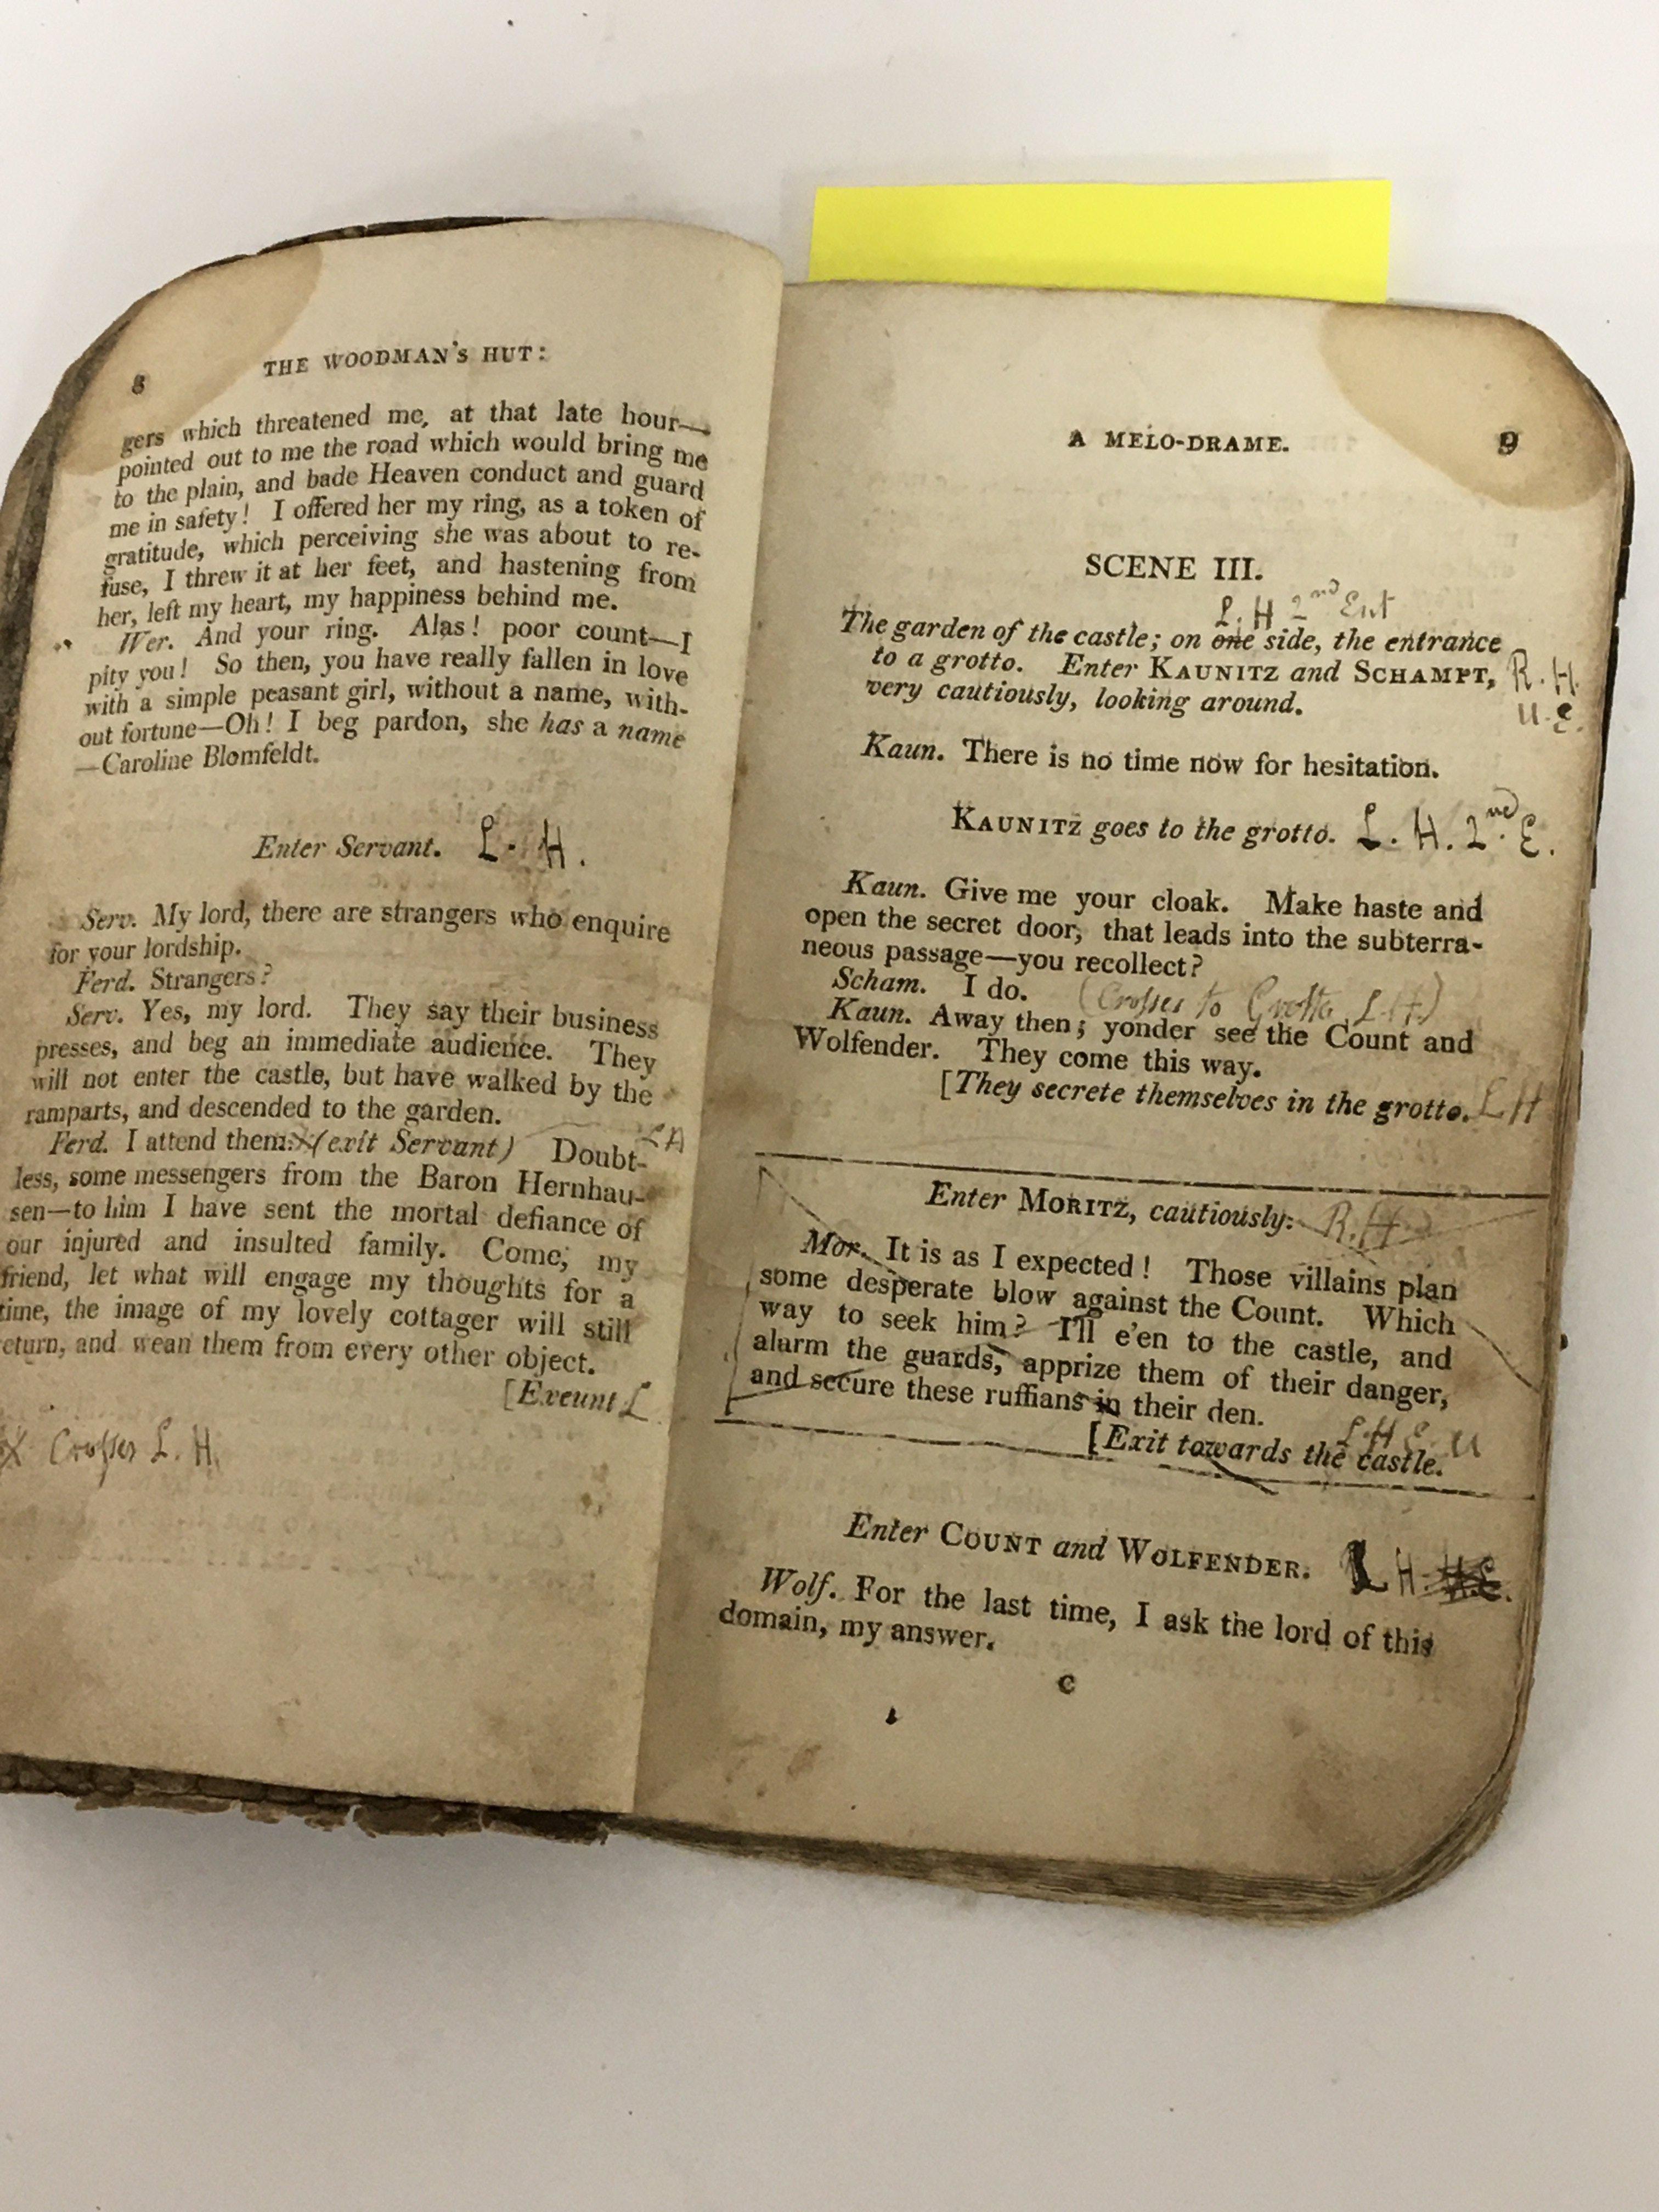 8
THE WOODMAN'S HUT:
gers which threatened me, at that late hour—
pointed out to me the road which would bring me
to the plain, and bade Heaven conduct and guard
me in safety! I offered her my ring, as a token of
gratitude, which perceiving she was about to re-
fuse, I threw it at her feet, and hastening from
her, left my heart, my happiness behind me.
Wer. And your ring. Alas! poor count—I
pity you! So then, you have really fallen in love
with a simple peasant girl, without a name, with-
out fortune—Oh! I beg pardon, she has a name
—Caroline Blomfeldt.
Enter Servant. L. H.
Serv. My lord, there are strangers who enquire
for your lordship.
Ferd. Strangers?
Serv. Yes, my lord. They say their business
presses, and beg an immediate audience. They
will not enter the castle, but have walked by the
ramparts, and descended to the garden.
Ferd. I attend them. X (exit Servant) LH Doubt-
less, some messengers from the Baron Hernhau-
sen—to him I have sent the mortal defiance of
our injured and insulted family. Come, my
friend, let what will engage my thoughts for a
time, the image of my lovely cottager will still
eturn, and wean them from every other object.
[Exeunt L
X Crosses L. H.
A MELO-DRAME.
9
SCENE III.
L. H 2nd Ent
The garden of the castle; on one side, the entrance
to a grotto. Enter KAUNITZ and SCHAMPT, R. H.
very cautiously, looking around. U. E.
Kaun. There is no time now for hesitation.
KAUNITZ goes to the grotto. L. H. 2nd E.
Kaun. Give me your cloak. Make haste and
open the secret door, that leads into the subterra-
neous passage—you recollect?
Scham. I do. (Crosses to Grotto L.H.)
Kaun. Away then; yonder see the Count and
Wolfender. They come this way.
[They secrete themselves in the grotto. LH
Enter MORITZ, cautiously. R.H.
Mor. It is as I expected! Those villains plan
some desperate blow against the Count. Which
way to seek him? I'll e'en to the castle, and
alarm the guards, apprize them of their danger,
and secure these ruffians in their den.
L.H E. U
[Exit towards the castle.
Enter COUNT and WOLFENDER. L H
Wolf. For the last time, I ask the lord of this
domain, my answer.
C